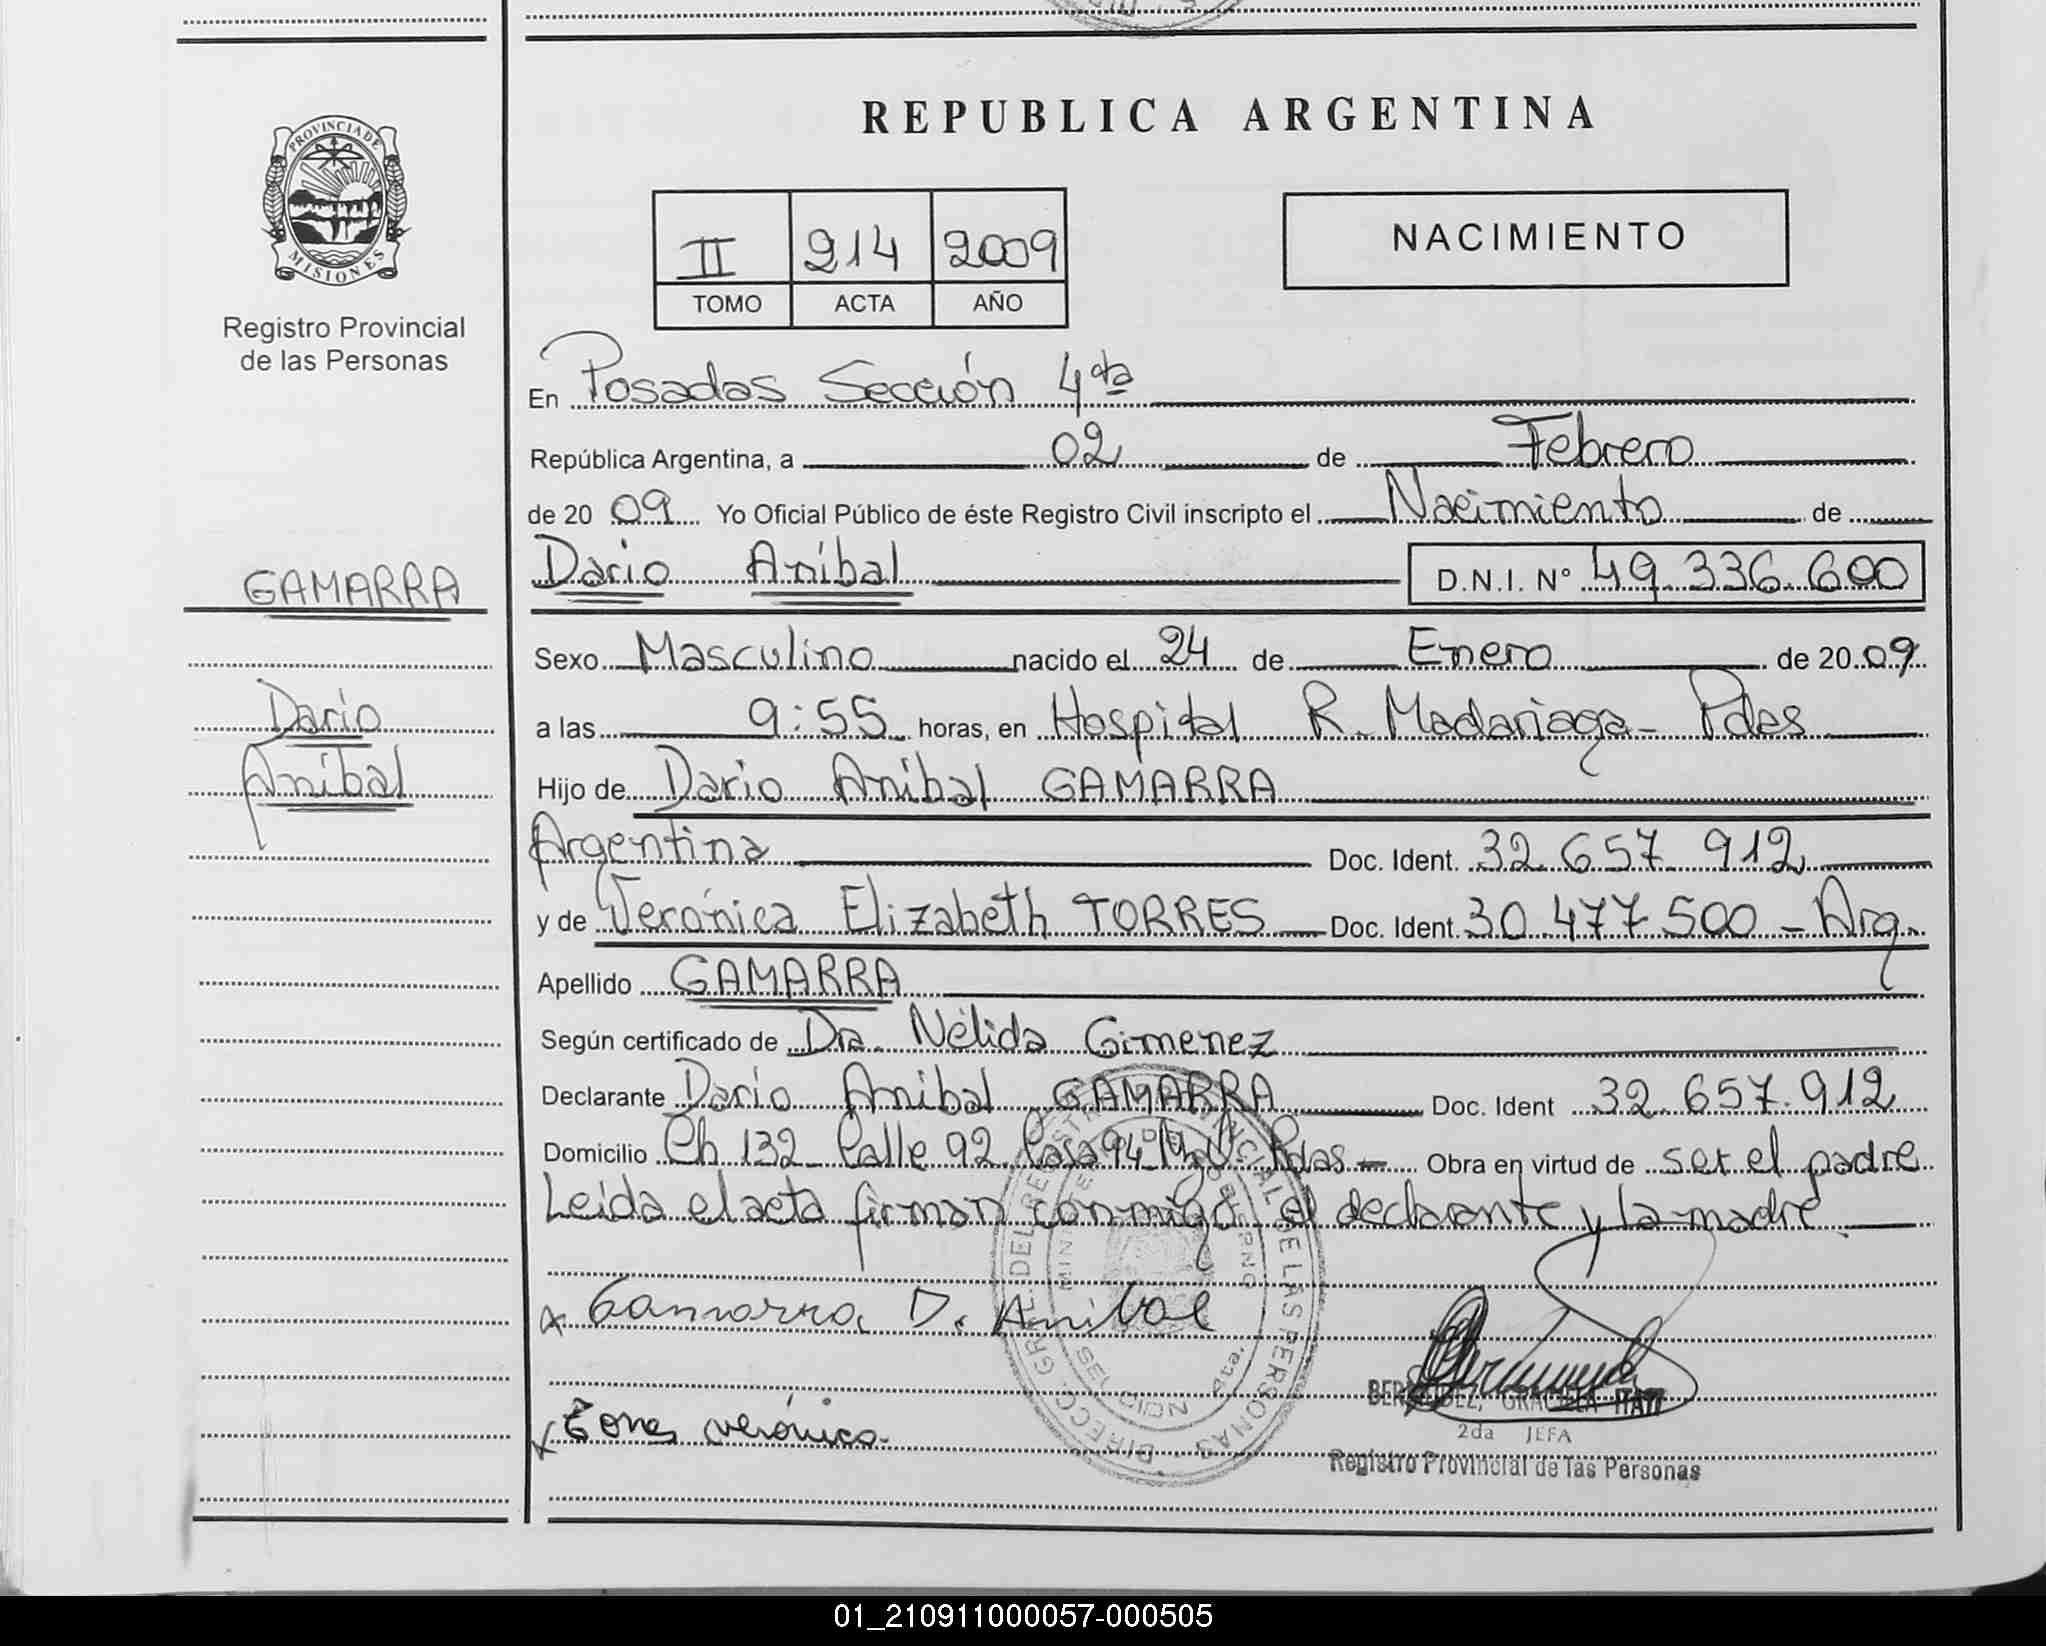 REPUBLICA ARGENTINA
PROVINCIA DE MISIONES
Registro Provincial
de las Personas
II 214 2009
TOMO ACTA AÑO
NACIMIENTO
En Posadas Sección 4ta
República Argentina, a 02 de Febrero
de 2009 Yo Oficial Público de éste Registro Civil inscripto el Nacimiento de
GAMARRA
Dario Aníbal D.N.I. Nº 49.336.600
Sexo Masculino nacido el 24 de Enero de 2009
Darío
Aníbal
a las 9:55 horas, en Hospital R. Madariaga - Pdas
Hijo de Dario Anibal GAMARRA
Argentina Doc. Ident. 32.657.912
y de Verónica Elizabeth TORRES Doc. Ident. 30.477.500 - Arg.
Apellido GAMARRA
Según certificado de Dra. Nélida Gimenez
Declarante Darío Anibal GAMARRA Doc. Ident 32.657.912
Domicilio Ch 132 Calle 92 Casa 94 Pdas - Obra en virtud de ser el padre
Leída el acta firman conmigo el declarante y la madre
x Gamarra D. Anibal
x Torres verónica
DIRECC. GRAL. DEL REGISTRO PROVINCIAL DE LAS PERSONAS
MINISTERIO DE GOBIERNO
SECCION 4ta.
BERMUDEZ, GRACIELA ITATI
2da JEFA
Registro Provincial de las Personas
01_210911000057-000505